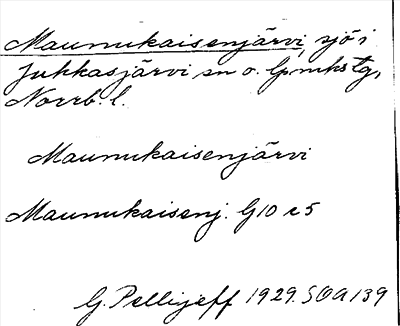 Maunukaisenjärvi, sjö i
Jukkasjärvi sn o. lpmkstg,
Norrb. l.
Maunukaisenjärvi
Maunukaisenj. G10 c5
G. Pellijeff 1929. SOA 139